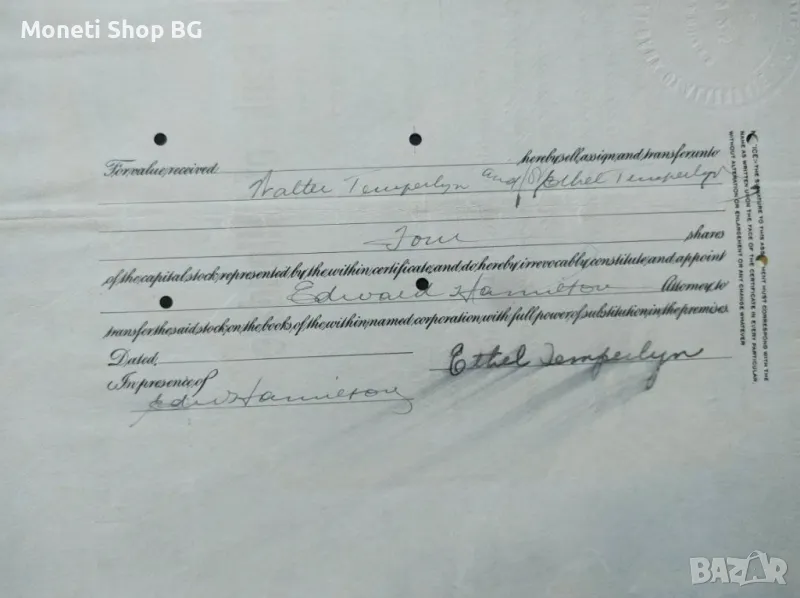 Moneti Shop BG
For value received hereby sell, assign, and transfer unto
Walter Temperlyn and/or Ethel Temperlyn
Four shares
of the capital stock, represented by the within certificate, and do hereby irrevocably constitute and appoint
Edward Hamilton Attorney to
transfer the said stock, on the books, of the within named corporation, with full power of substitution, in the premises.
Dated.
Ethel Temperlyn
In presence of
Edw Hamilton
NOTICE—THE SIGNATURE TO THIS ASSIGNMENT MUST CORRESPOND WITH THE
NAME AS WRITTEN UPON THE FACE OF THE CERTIFICATE IN EVERY PARTICULAR
WITHOUT ALTERATION OR ENLARGEMENT OR ANY CHANGE WHATEVER
BAZAR